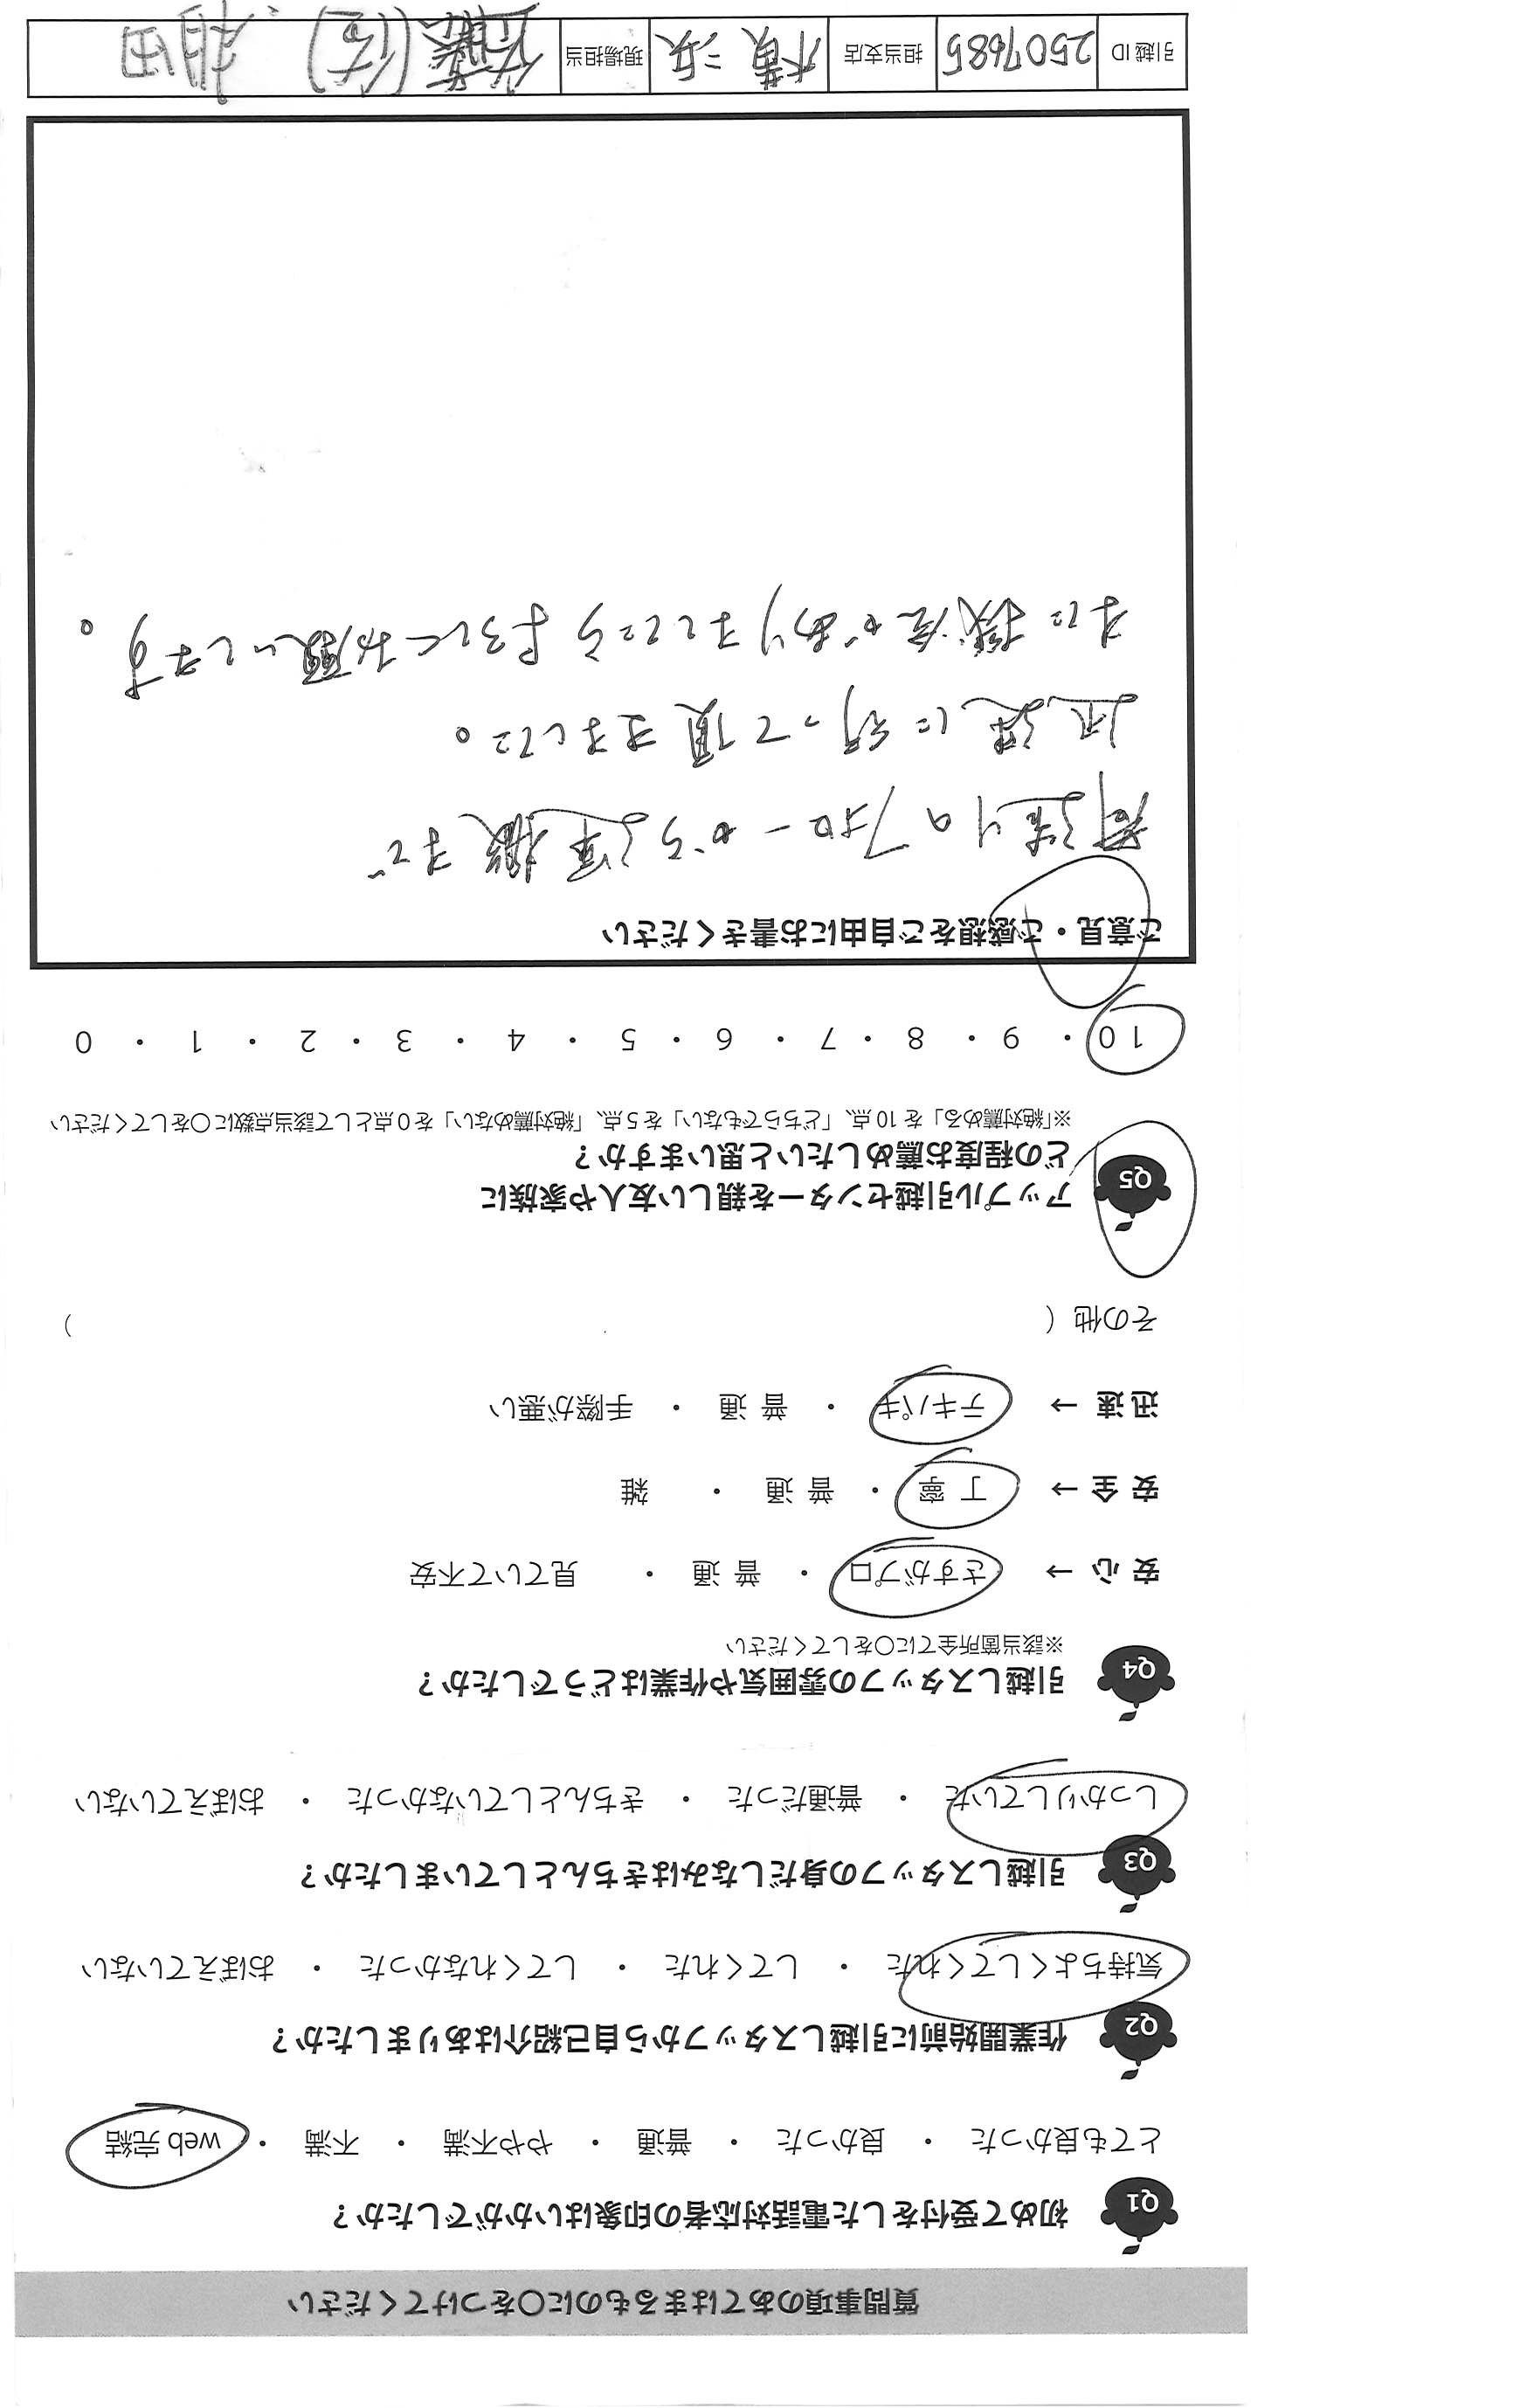 質問事項のあてはまるものに〇をつけてください
Q1 初めて受付をした電話対応者の印象はいかがでしたか？
とても良かった ・ 良かった ・ 普通 ・ やや不満 ・ 不満 ・ web 完結
Q2 作業開始前に引越しスタッフから自己紹介はありましたか？
気持ちよくしてくれた ・ してくれた ・ してくれなかった ・ おぼえていない
Q3 引越しスタッフの身だしなみはきちんとしていましたか？
しっかりしていた ・ 普通だった ・ きちんとしていなかった ・ おぼえていない
Q4 引越しスタッフの雰囲気や作業はどうでしたか？
※該当箇所全てに〇をしてください
安 心 → さすがプロ ・ 普 通 ・ 見ていて不安
安 全 → 丁 寧 ・ 普 通 ・ 雑
迅 速 → テキパキ ・ 普 通 ・ 手際が悪い
その他（ ）
Q5 アップル引越センターを親しい友人や家族に
どの程度お薦めしたいと思いますか？
※「絶対薦める」を 10 点、「どちらでもない」を 5 点、「絶対薦めない」を 0 点として該当点数に〇をしてください
10 ・ 9 ・ 8 ・ 7 ・ 6 ・ 5 ・ 4 ・ 3 ・ 2 ・ 1 ・ 0
ご意見・ご感想をご自由にお書きください
荷造りのフォローから運搬まで
迅速に行って頂きました。
また機会がありましたらよろしくお願いします。
引越 ID 2507685 担当支店 横浜 現場担当 佐藤(信) 相田